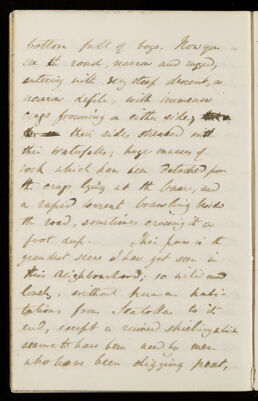 bottom full of bogs. Now you
see the road, narrow and rugged,
entering with very steep descent, a
narrow defile, with immense
crags frowning on either side,
their sides streaked with
thin waterfalls; huge masses of
rock which have been detached from
the crags lying at the base, and
a rapid torrent brawling beside
the road, sometimes crossing it a
foot deep. This pass is the
grandest scene I have yet seen in
this neighbourhood; so wild and
lonely, without human habi-
tations from to its
end, except a ruined shieling which
seems to have been used by men
who have been digging peat,